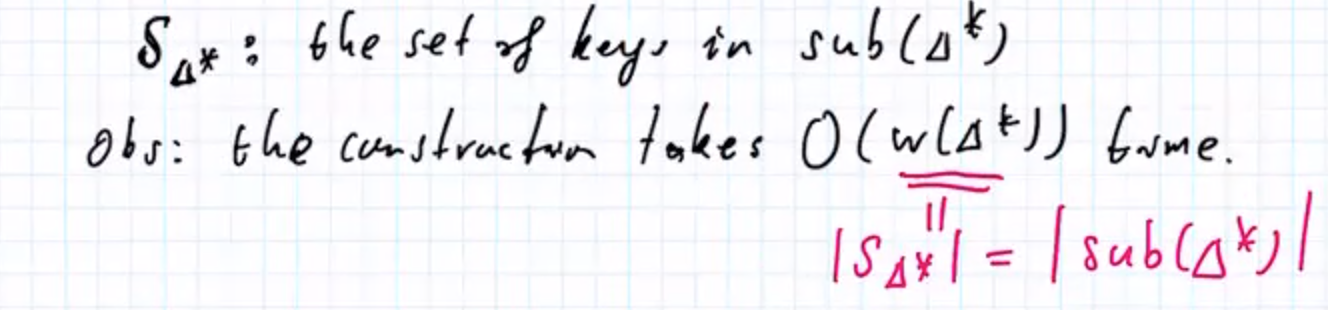 S_Δ* : the set of keys in sub(Δ*)
Obs: the construction takes O(w(Δ*)) time.
||
|S_Δ*| = |sub(Δ*)|